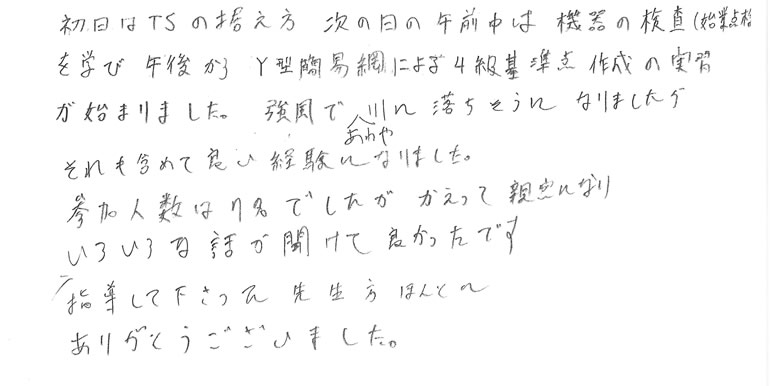 初日はTSの据え方 次の日の午前中は 機器の検査(始業点検
を学び 午後から Y型簡易網による4級基準点 作成の実習
が始まりました。 強風で あわや 川に 落ちそうに なりましたが
それも含めて良い経験になりました。
参加人数は7名でしたが かえって 親密になり
いろいろな話が聞けて良かったです
指導して下さった 先生方 ほんとに
ありがとうございました。